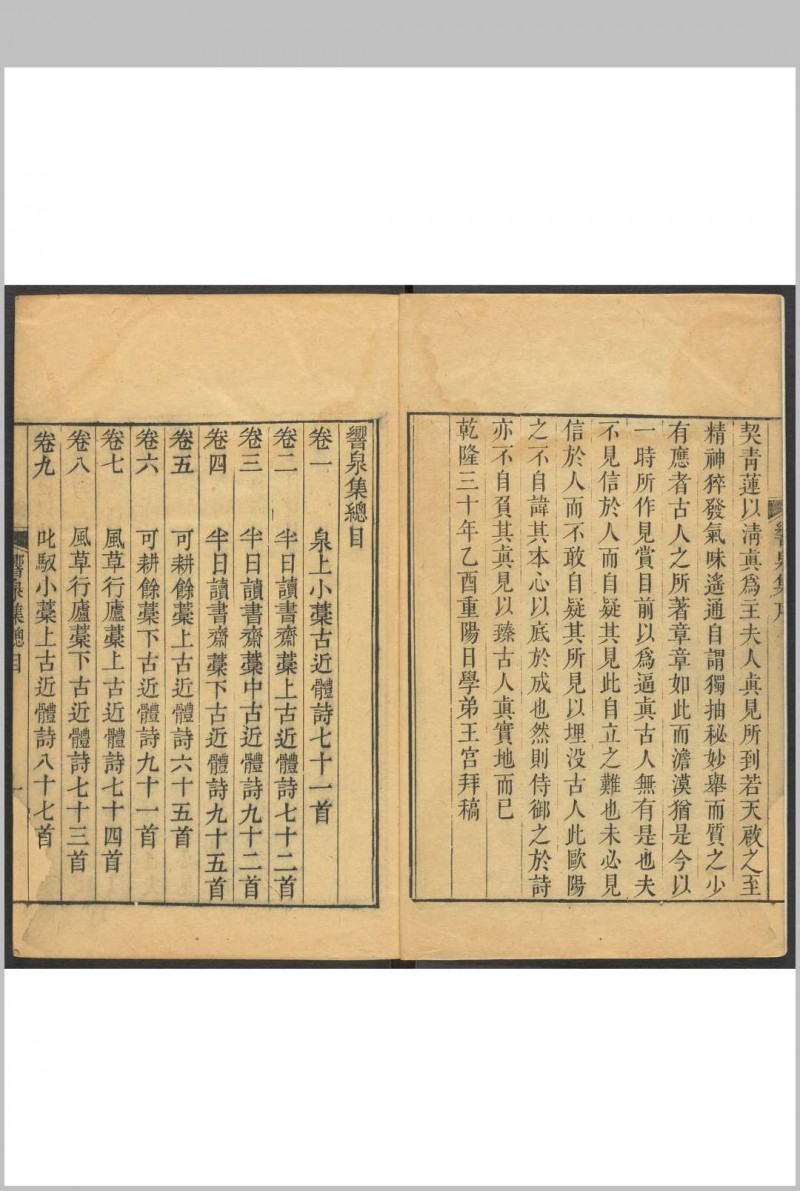 契靑蓮以淸眞爲王夫人眞見所到若天啟之至
精神猝發氣味遙通自謂獨抽秘妙舉而質之少
有應者古人之所著章章如此而澹漠猶是今以
一時所作見賞目前以爲逼眞古人無有是也夫
不見信於人而自疑其見此自立之難也未必見
信於人而不敢自疑其所見以埋没古人此歐陽
之不自諱其本心以底於成也然則侍御之於詩
亦不自負其眞見以臻古人眞實地而已
乾隆三十年乙酉重陽日學弟王宮拜稿
響泉集總目
卷一 泉上小藁古近體詩七十一首
卷二 半日讀書齋藁上古近體詩七十二首
卷三 半日讀書齋藁中古近體詩九十二首
卷四 半日讀書齋藁下古近體詩九十五首
卷五 可耕餘藁上古近體詩六十五首
卷六 可耕餘藁下古近體詩九十一首
卷七 風草行廬藁上古近體詩七十四首
卷八 風草行廬藁下古近體詩七十三首
卷九 叱馭小藁上古近體詩八十七首
響泉集總目 一